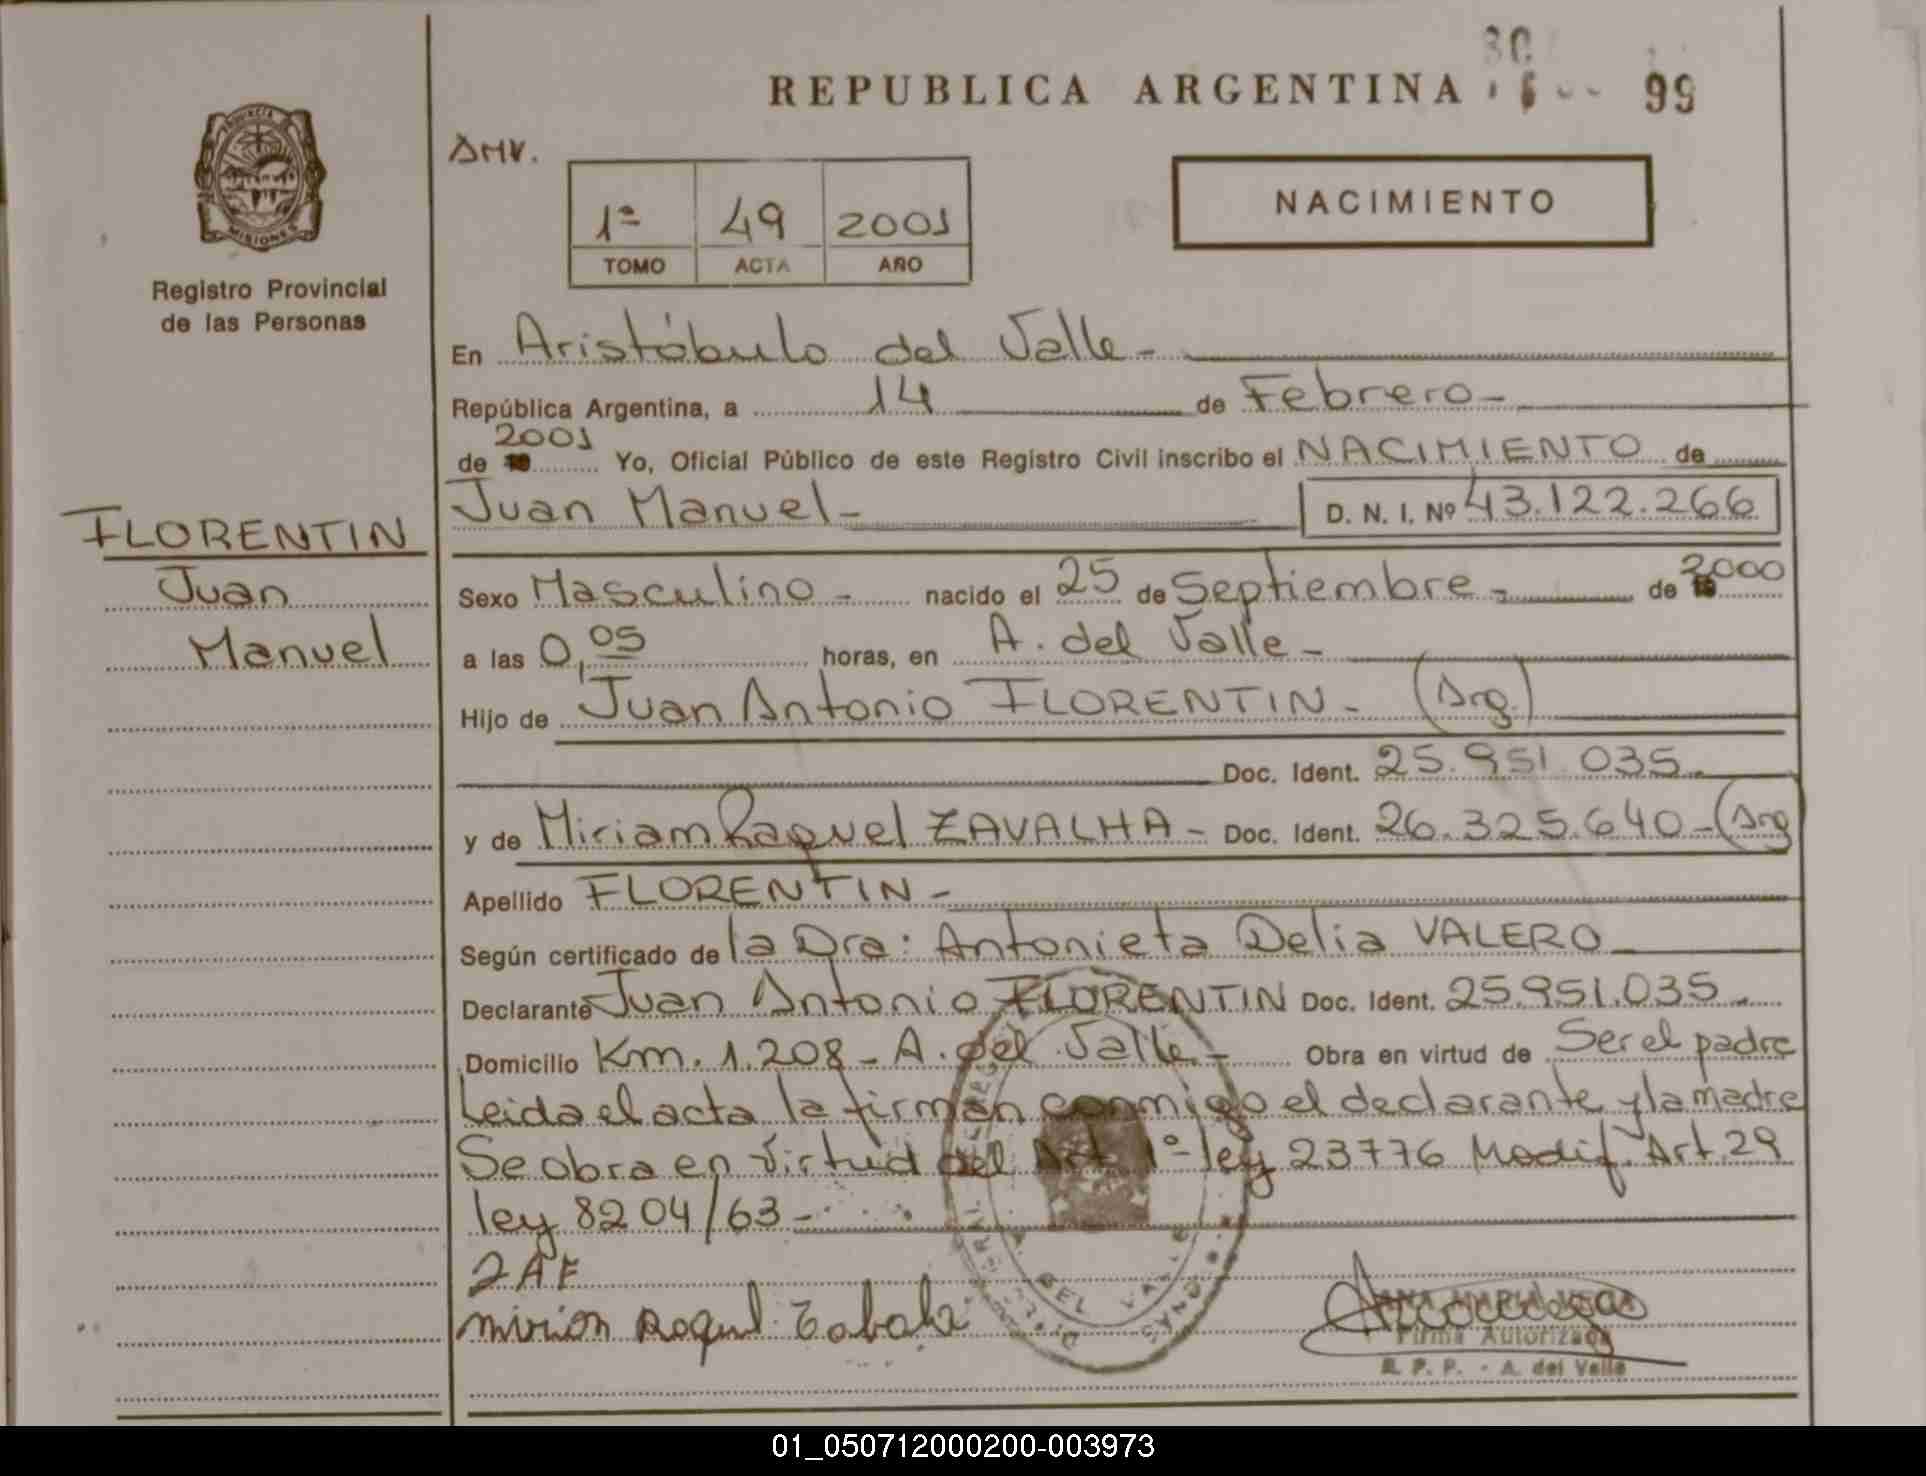 REPUBLICA ARGENTINA
99
PROVINCIA
MISIONES
Registro Provincial
de las Personas
1º 49 2001
TOMO ACTA AÑO
NACIMIENTO
En Aristóbulo del Valle -
República Argentina, a 14 de Febrero -
de 2001 Yo, Oficial Público de este Registro Civil inscribo el NACIMIENTO de
Juan Manuel - D. N. I. Nº 43.122.266
FLORENTIN
Juan
Manuel
Sexo Masculino - nacido el 25 de Septiembre - de 2000
a las 0,05 horas, en A. del Valle -
Hijo de Juan Antonio FLORENTIN - (Arg.)
Doc. Ident. 25.951.035 -
y de Miriam Raquel ZAVALHA - Doc. Ident. 26.325.640 - (Arg
Apellido FLORENTIN -
Según certificado de la Dra: Antonieta Delia VALERO
Declarante Juan Antonio FLORENTIN Doc. Ident. 25.951.035 -
Domicilio Km. 1.208 - A. del Valle - Obra en virtud de Ser el padre
Leida el acta la firman conmigo el declarante y la madre
Se obra en virtud del Art 1º ley 23776 Modif. Art. 29
ley 8204/63 -
A. DEL VALLE
ANA MARIA VEGA
Firma Autorizada
R. P. P. - A. del Valle
01_050712000200-003973